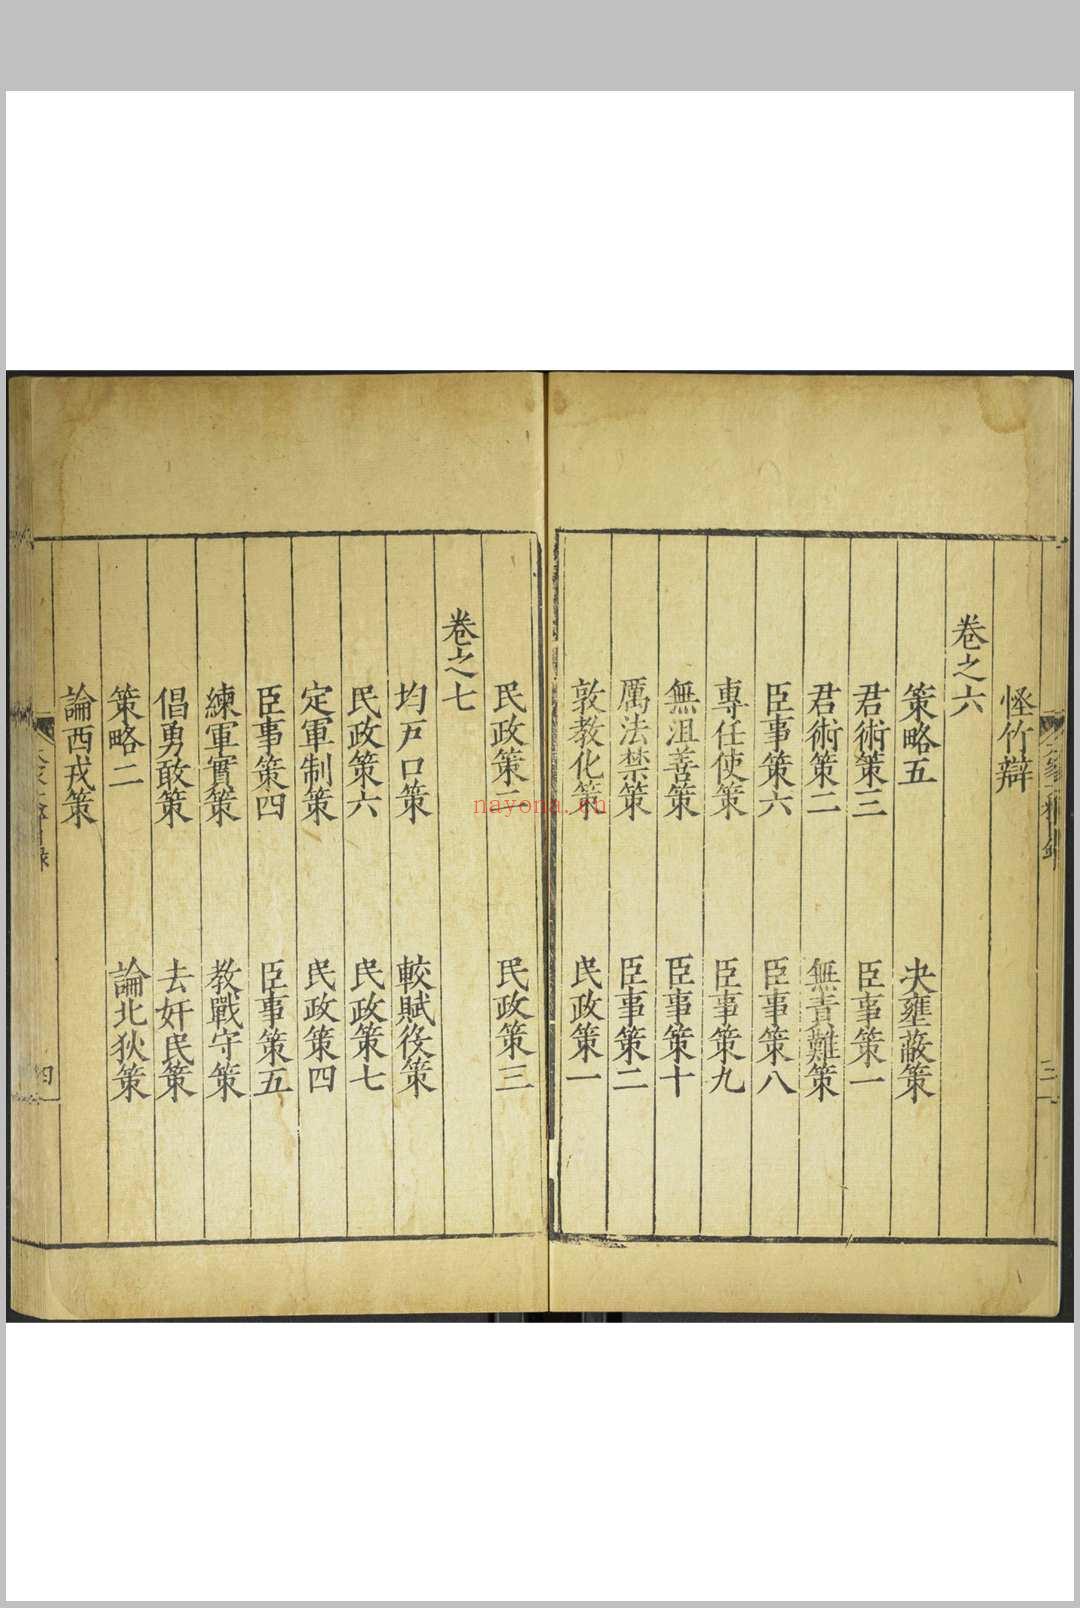 怪竹辯
卷之六
策略五
決壅蔽策
君術策三
臣事策一
君術策二
無責難策
臣事策六
臣事策八
專任使策
臣事策九
無沮善策
臣事策十
厲法禁策
臣事策二
敦教化策
民政策一
民政策二
民政策三
卷之七
均戸口策
較賦役策
民政策六
民政策七
定軍制策
民政策四
臣事策四
臣事策五
練軍實策
教戰守策
倡勇敢策
去奸民策
策略二
論北狄策
論西戎策
四
nayona.cn